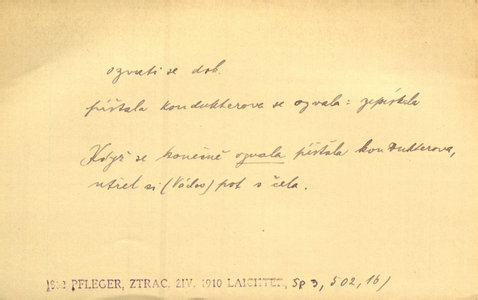 ozvati se dok.
píšťala kondukterova se ozvala: zapískla
Když se konečně ozvala píšťala kondukterova,
utřel si (Václav) pot s čela.
1862 PFLEGER, ZTRAC. ŽIV. 1910 LAICHTER, Sp 3, 502, 16/